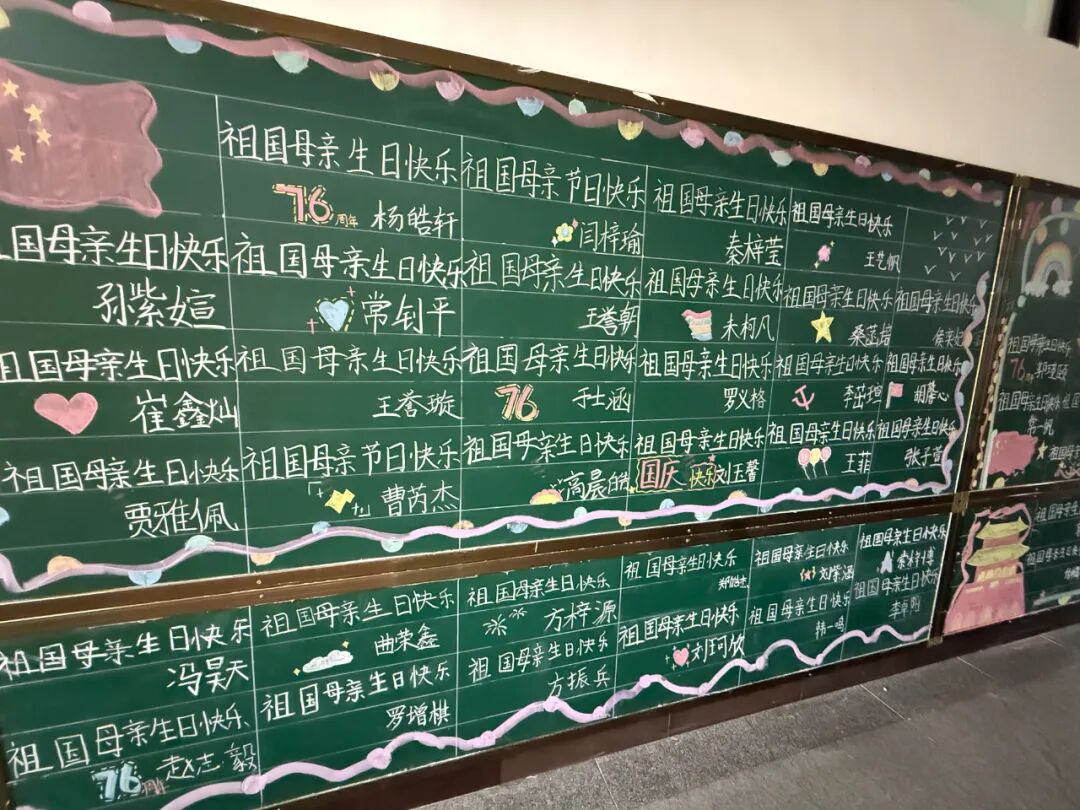 祖国母亲生日快乐
76周年 杨皓轩
祖国母亲节日快乐
闫梓瑜
祖国母亲生日快乐
秦梓莹
祖国母亲生日快乐
王艺帆
国母亲生日快乐
孙紫媗
祖国母亲生日快乐
常钊平
祖国母亲生日快乐
王誉朝
祖国母亲生日快乐
未柯凡
祖国母亲生日快乐
桑菡培
祖国母亲生日快乐
祖国母亲生日快乐
崔鑫灿
祖国母亲生日快乐
王誉璇
祖国母亲生日快乐
76 于士涵
祖国母亲生日快乐
罗义格
祖国母亲生日快乐
李茁瑄
祖国母亲生日快乐
明馨心
祖国母亲生日快乐
贾雅佩
祖国母亲节日快乐
曹芮杰
祖国母亲生日快乐
高晨皓
祖国母亲生日快乐
国庆快乐 刘玉馨
祖国母亲生日快乐
王菲
祖国母亲生日快乐
张子萱
祖国母亲生日快乐
冯昊天
祖国母亲生日快乐
曲荣鑫
祖国母亲生日快乐
方梓源
祖国母亲生日快乐
祖国母亲生日快乐
刘紫涵
祖国母亲生日快乐
祖国母亲生日快乐
76周年 赵志毅
祖国母亲生日快乐
罗增棋
祖国母亲生日快乐
方振兵
祖国母亲生日快乐
刘珂欣
祖国母亲生日快乐
韩一鸣
祖国母亲生日快乐
祖国母亲生日快乐
76
祖国母亲生日快乐
祖国母亲生日快乐